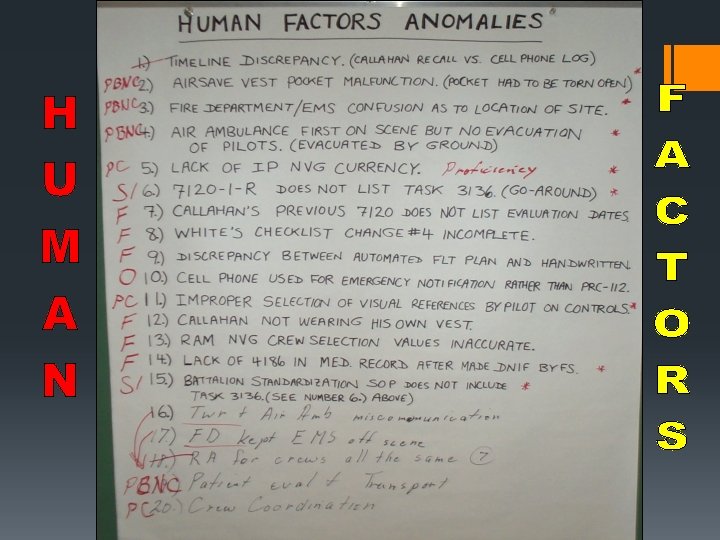 HUMAN FACTORS ANOMALIES
1.) TIMELINE DISCREPANCY. (CALLAHAN RECALL VS. CELL PHONE LOG)
PBNC 2.) AIRSAVE VEST POCKET MALFUNCTION. (POCKET HAD TO BE TORN OPEN) *
PBNC 3.) FIRE DEPARTMENT/EMS CONFUSION AS TO LOCATION OF SITE. *
PBNC 4.) AIR AMBULANCE FIRST ON SCENE BUT NO EVACUATION *
OF PILOTS. (EVACUATED BY GROUND)
PC 5.) LACK OF IP NVG CURRENCY. Proficiency *
S/ 6.) 7120-1-R DOES NOT LIST TASK 3136. (GO-AROUND) *
F 7.) CALLAHAN'S PREVIOUS 7120 DOES NOT LIST EVALUATION DATES.
F 8.) WHITE'S CHECKLIST CHANGE #4 INCOMPLETE.
F 9.) DISCREPANCY BETWEEN AUTOMATED FLT PLAN AND HANDWRITTEN.
O 10.) CELL PHONE USED FOR EMERGENCY NOTIFICATION RATHER THAN PRC-112.
PC 11.) IMPROPER SELECTION OF VISUAL REFERENCES BY PILOT ON CONTROLS. *
F 12.) CALLAHAN NOT WEARING HIS OWN VEST.
F 13.) RAM NVG CREW SELECTION VALUES INACCURATE.
F 14.) LACK OF 4186 IN MED. RECORD AFTER MADE DNIF BY FS.
S/ 15.) BATTALION STANDARDIZATION SOP DOES NOT INCLUDE *
TASK 3136. (SEE NUMBER 6.) ABOVE)
16.) Twr & Air Amb miscommunication
17.) FD kept EMS off scene
18.) RA for crews all the same 7
PBNC Patient eval & Transport
PC 20.) Crew Coordination
H
U
M
A
N
F
A
C
T
O
R
S